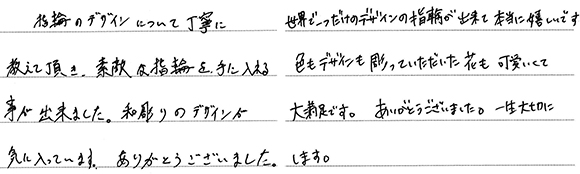 指輪のデザインについて丁寧に
教えて頂き、素敵な指輪を手に入れる
事が出来ました。和彫りのデザインが
気に入っています。ありがとうございました。
世界で一つだけのデザインの指輪が出来て本当に嬉しいです
色もデザインも彫っていただいた花も可愛いくて
大満足です。ありがとうございました。一生大切に
します。